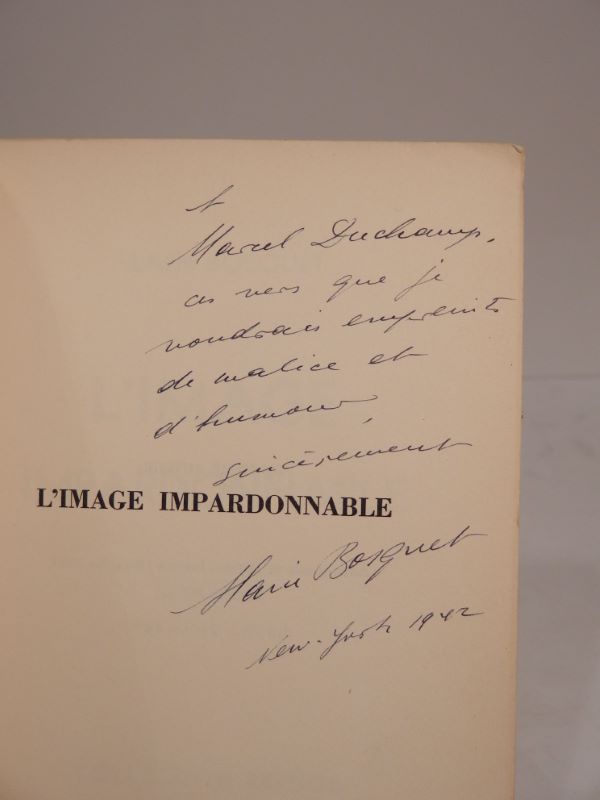 A
Marcel Duchamp,
ces vers que je
voudrais empreints
de malice et
d'humour,
sincèrement
L'IMAGE IMPARDONNABLE
Alain Bosquet
New-York 1942